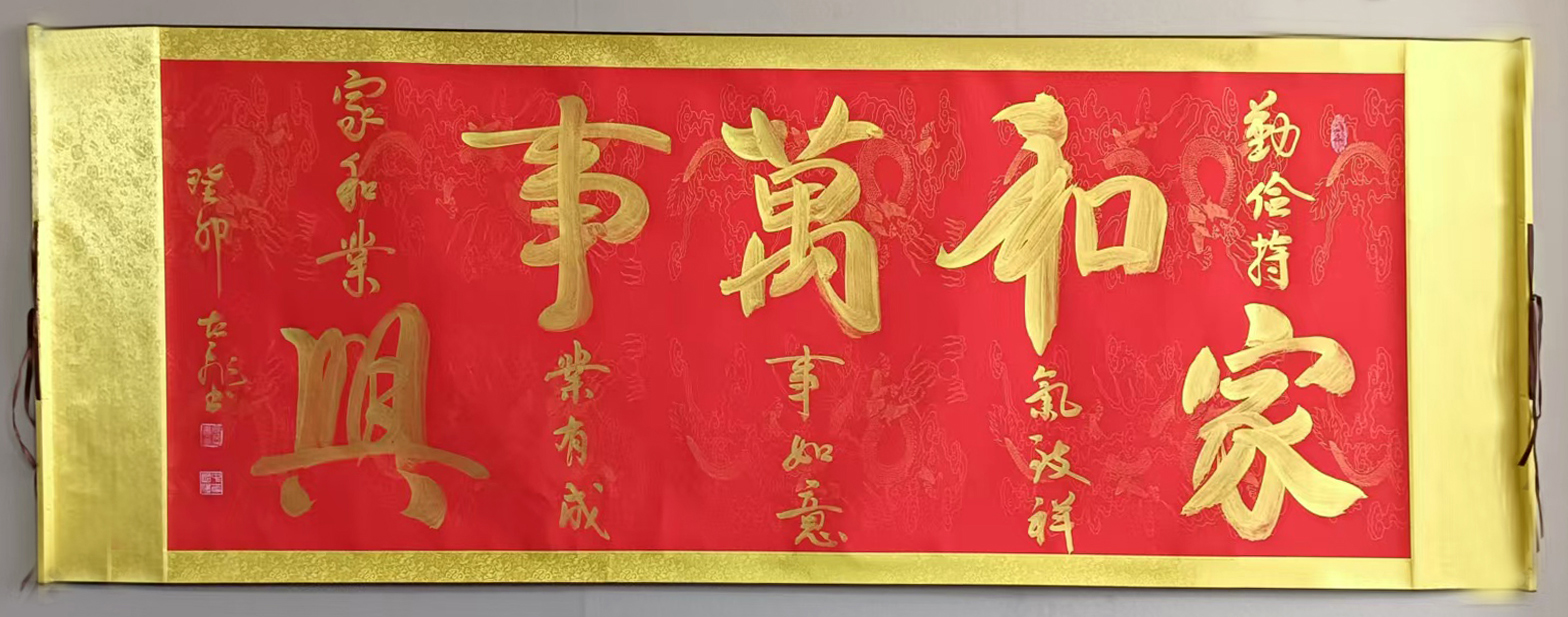 勤儉持家
和氣致祥
萬事如意
事業有成
家和業興
癸卯